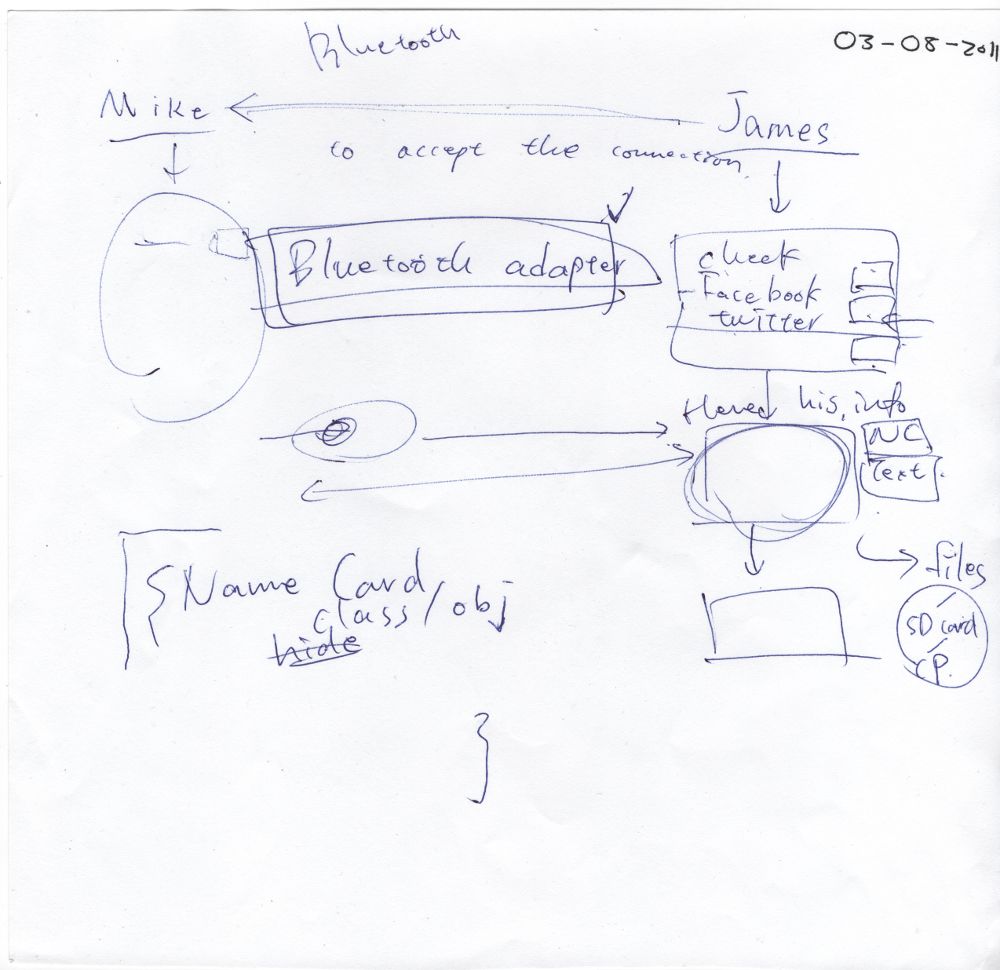 Bluetooth
03-08-2011
Mike
James
to accept the connection.
Bluetooth adapter
check
Facebook
twitter
his info
NC
Text
files
SD card
Name Card
class/obj
hide